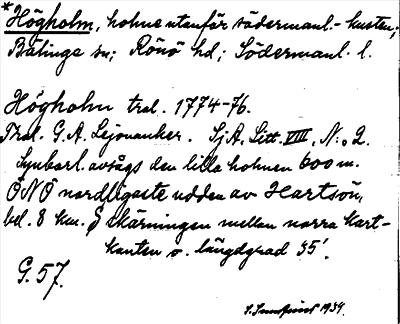 *Högholm, holme utanför södermanl.-kusten;
Bälinge sn; Rönö hd; Södermanl. l.
Högholm tral. 1774-76.
Tral. G.A. Lejonanker. SjA, Litt. VIII, N:o 2.
Synbarl. avsågs den lilla holmen 600 m.
ONO nordligaste udden av Hartsön,
bel. 8 km. S skärningen mellan norra kart-
kanten o. längdgrad 35'.
G. 57.
1934.